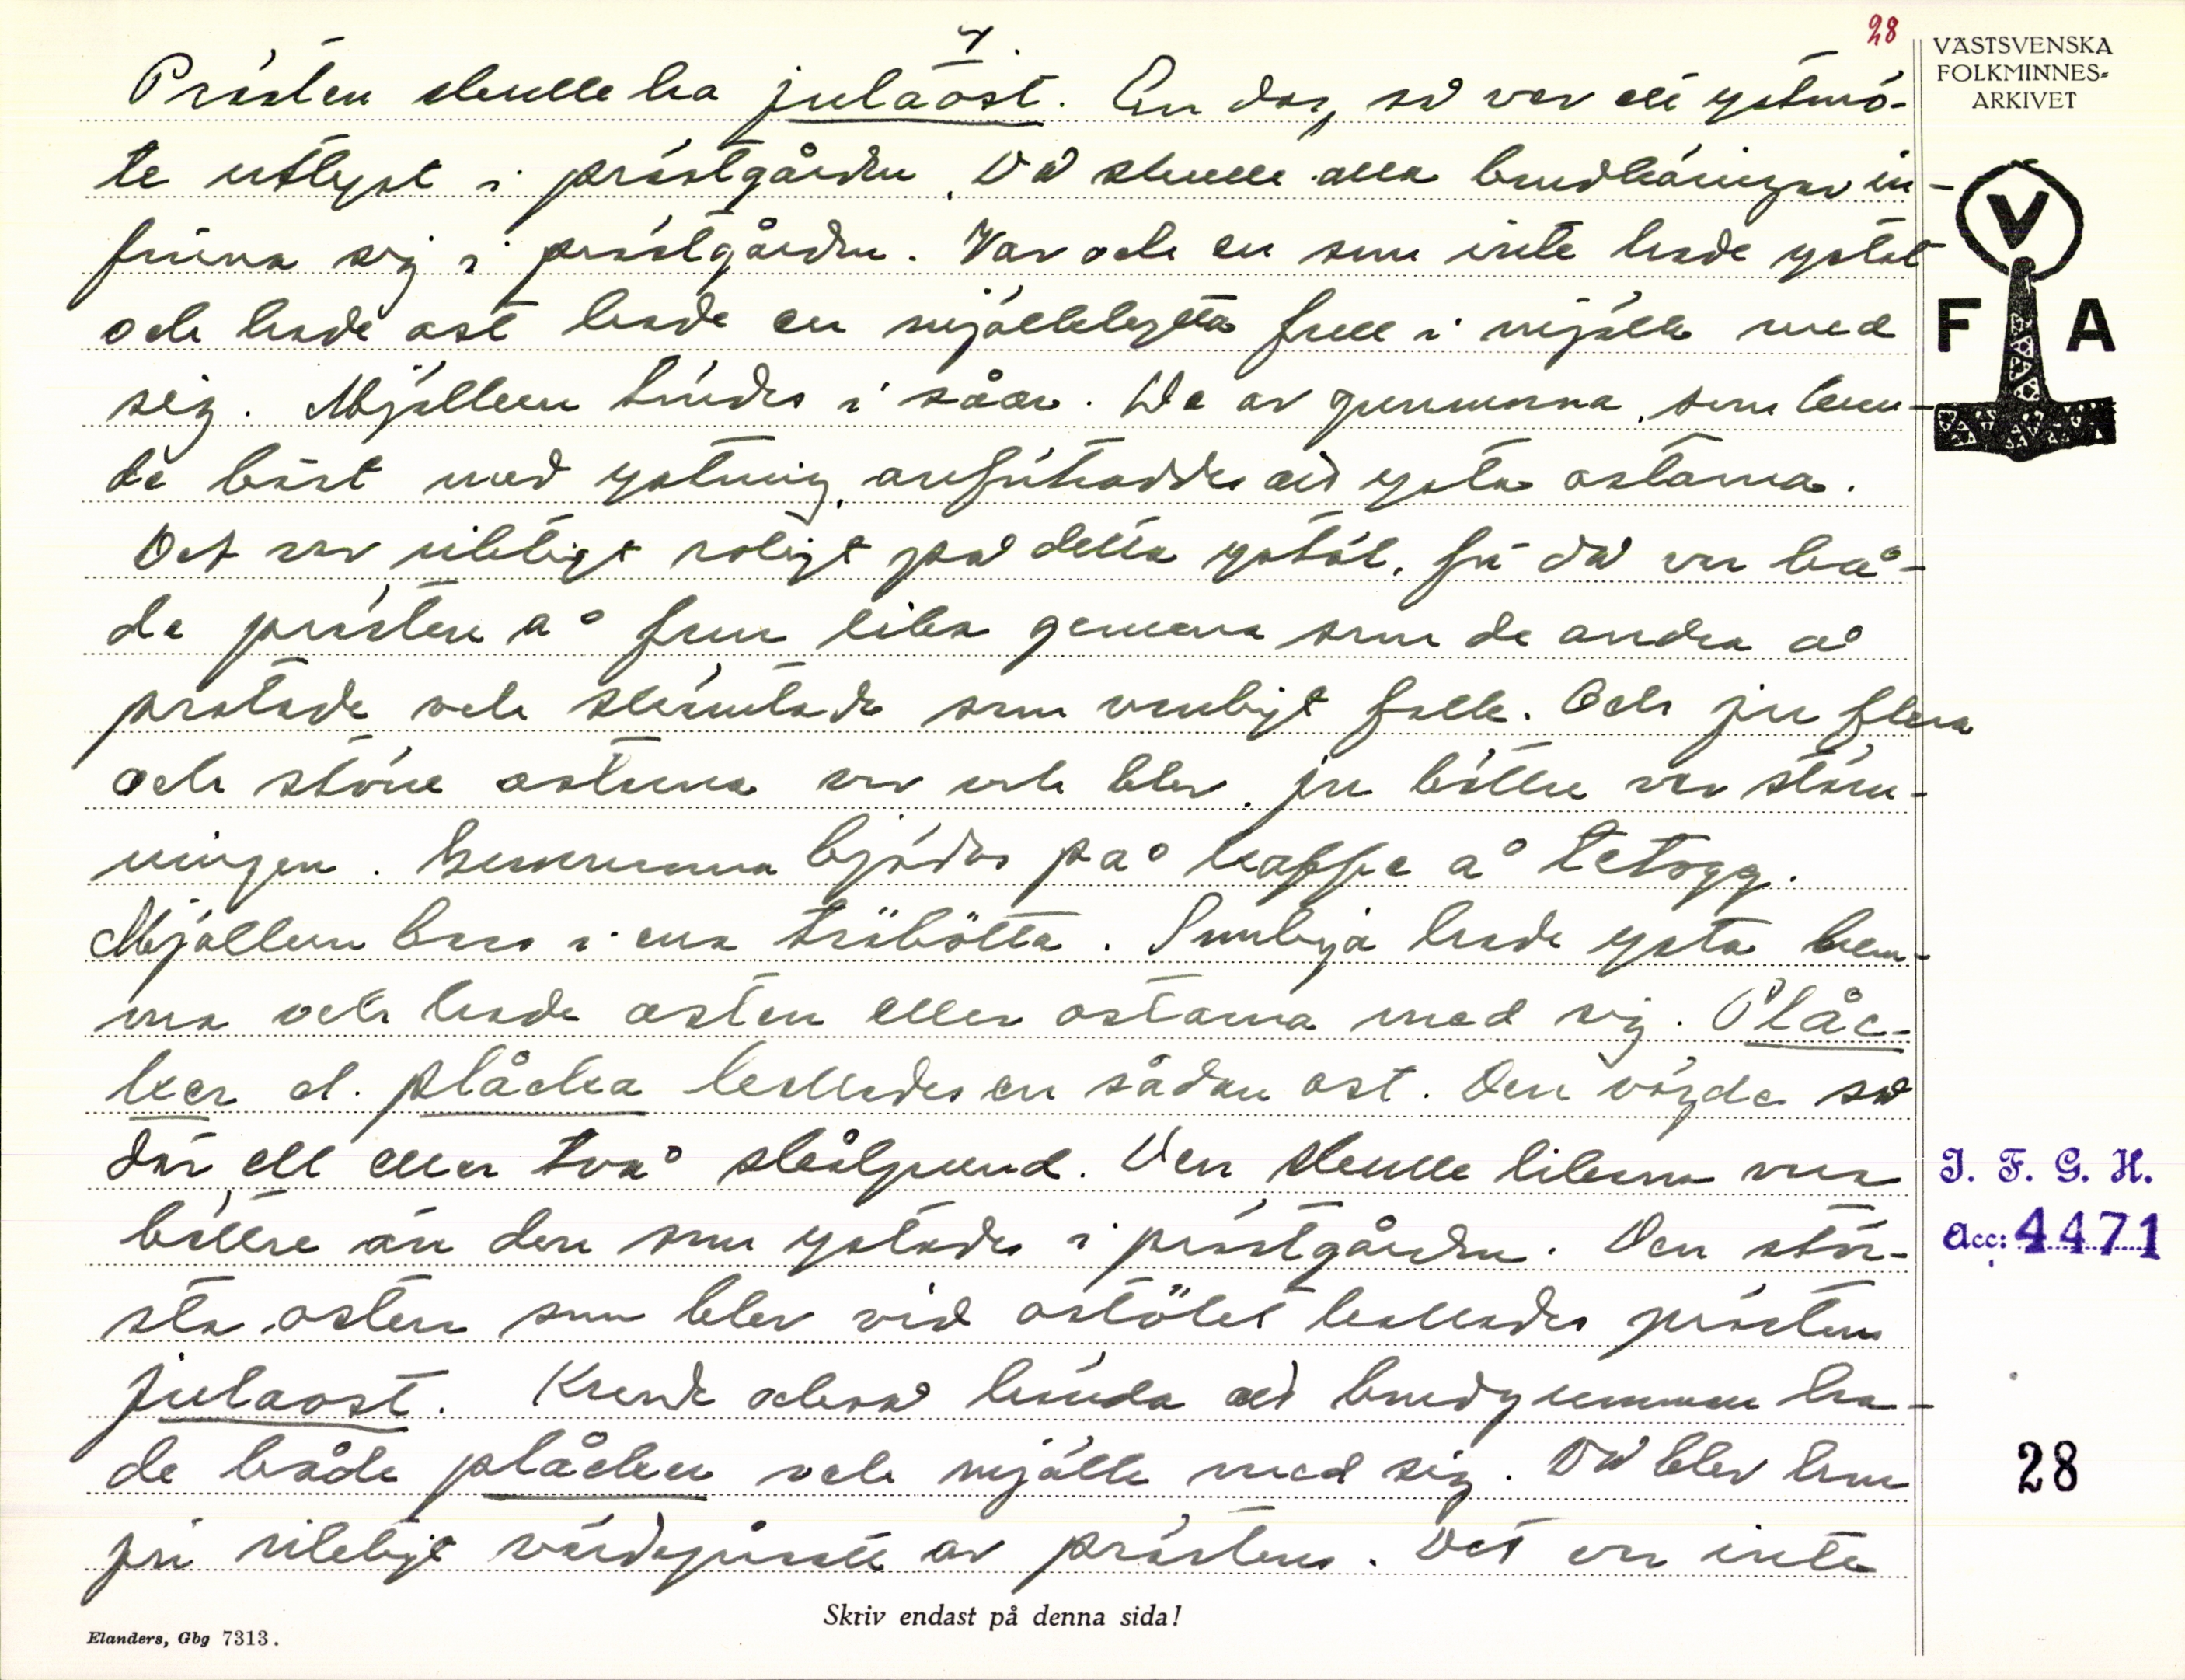 4.
28
Prästen skulle ha julaost. En dag, så var ett ystmö-
te utlyst i prästgården. Då skulle alla bondkäringar in-
finna sig i prästgården. Var och en som inte hade ystat
och hade ost hade en mjölkbytta full i mjölk med
sig. Mjölken tömdes i såar. De av gummorna, som kun-
de bäst med ystning, anförtroddes att ysta ostarna.
Det var riktigt roligt på detta ystöl, för då var bå-
de prästen å frun lika gemena som de andra å
pratade och skämtade som vanligt folk. Och ju flera
och större ostarna var och blev, ju bättre var stäm-
ningen. Gummorna bjödos på kaffe å tetogg.
Mjölken bars i ena träbötta. Somliga hade ysta hem-
ma och hade osten eller ostarna med sig. Plåc-
ker el. plåcka kallades en sådan ost. Den vägde så
där ett eller två skålpund. Den skulle liksom vara
bättre än den som ystades i prästgården. Den stör-
sta osten som blev vid ostölet kallades prästens
julaost. Kunde också hända att bondgumman ha-
de både plåcken och mjölk med sig. Då blev hon
ju riktigt värdepänsatt av prästens. Det var inte
Skriv endast på denna sida!
Elanders, Gbg 7313.
VÄSTSVENSKA
FOLKMINNES-
ARKIVET
V
F A
I. F. G. H.
Acc: 4471
28